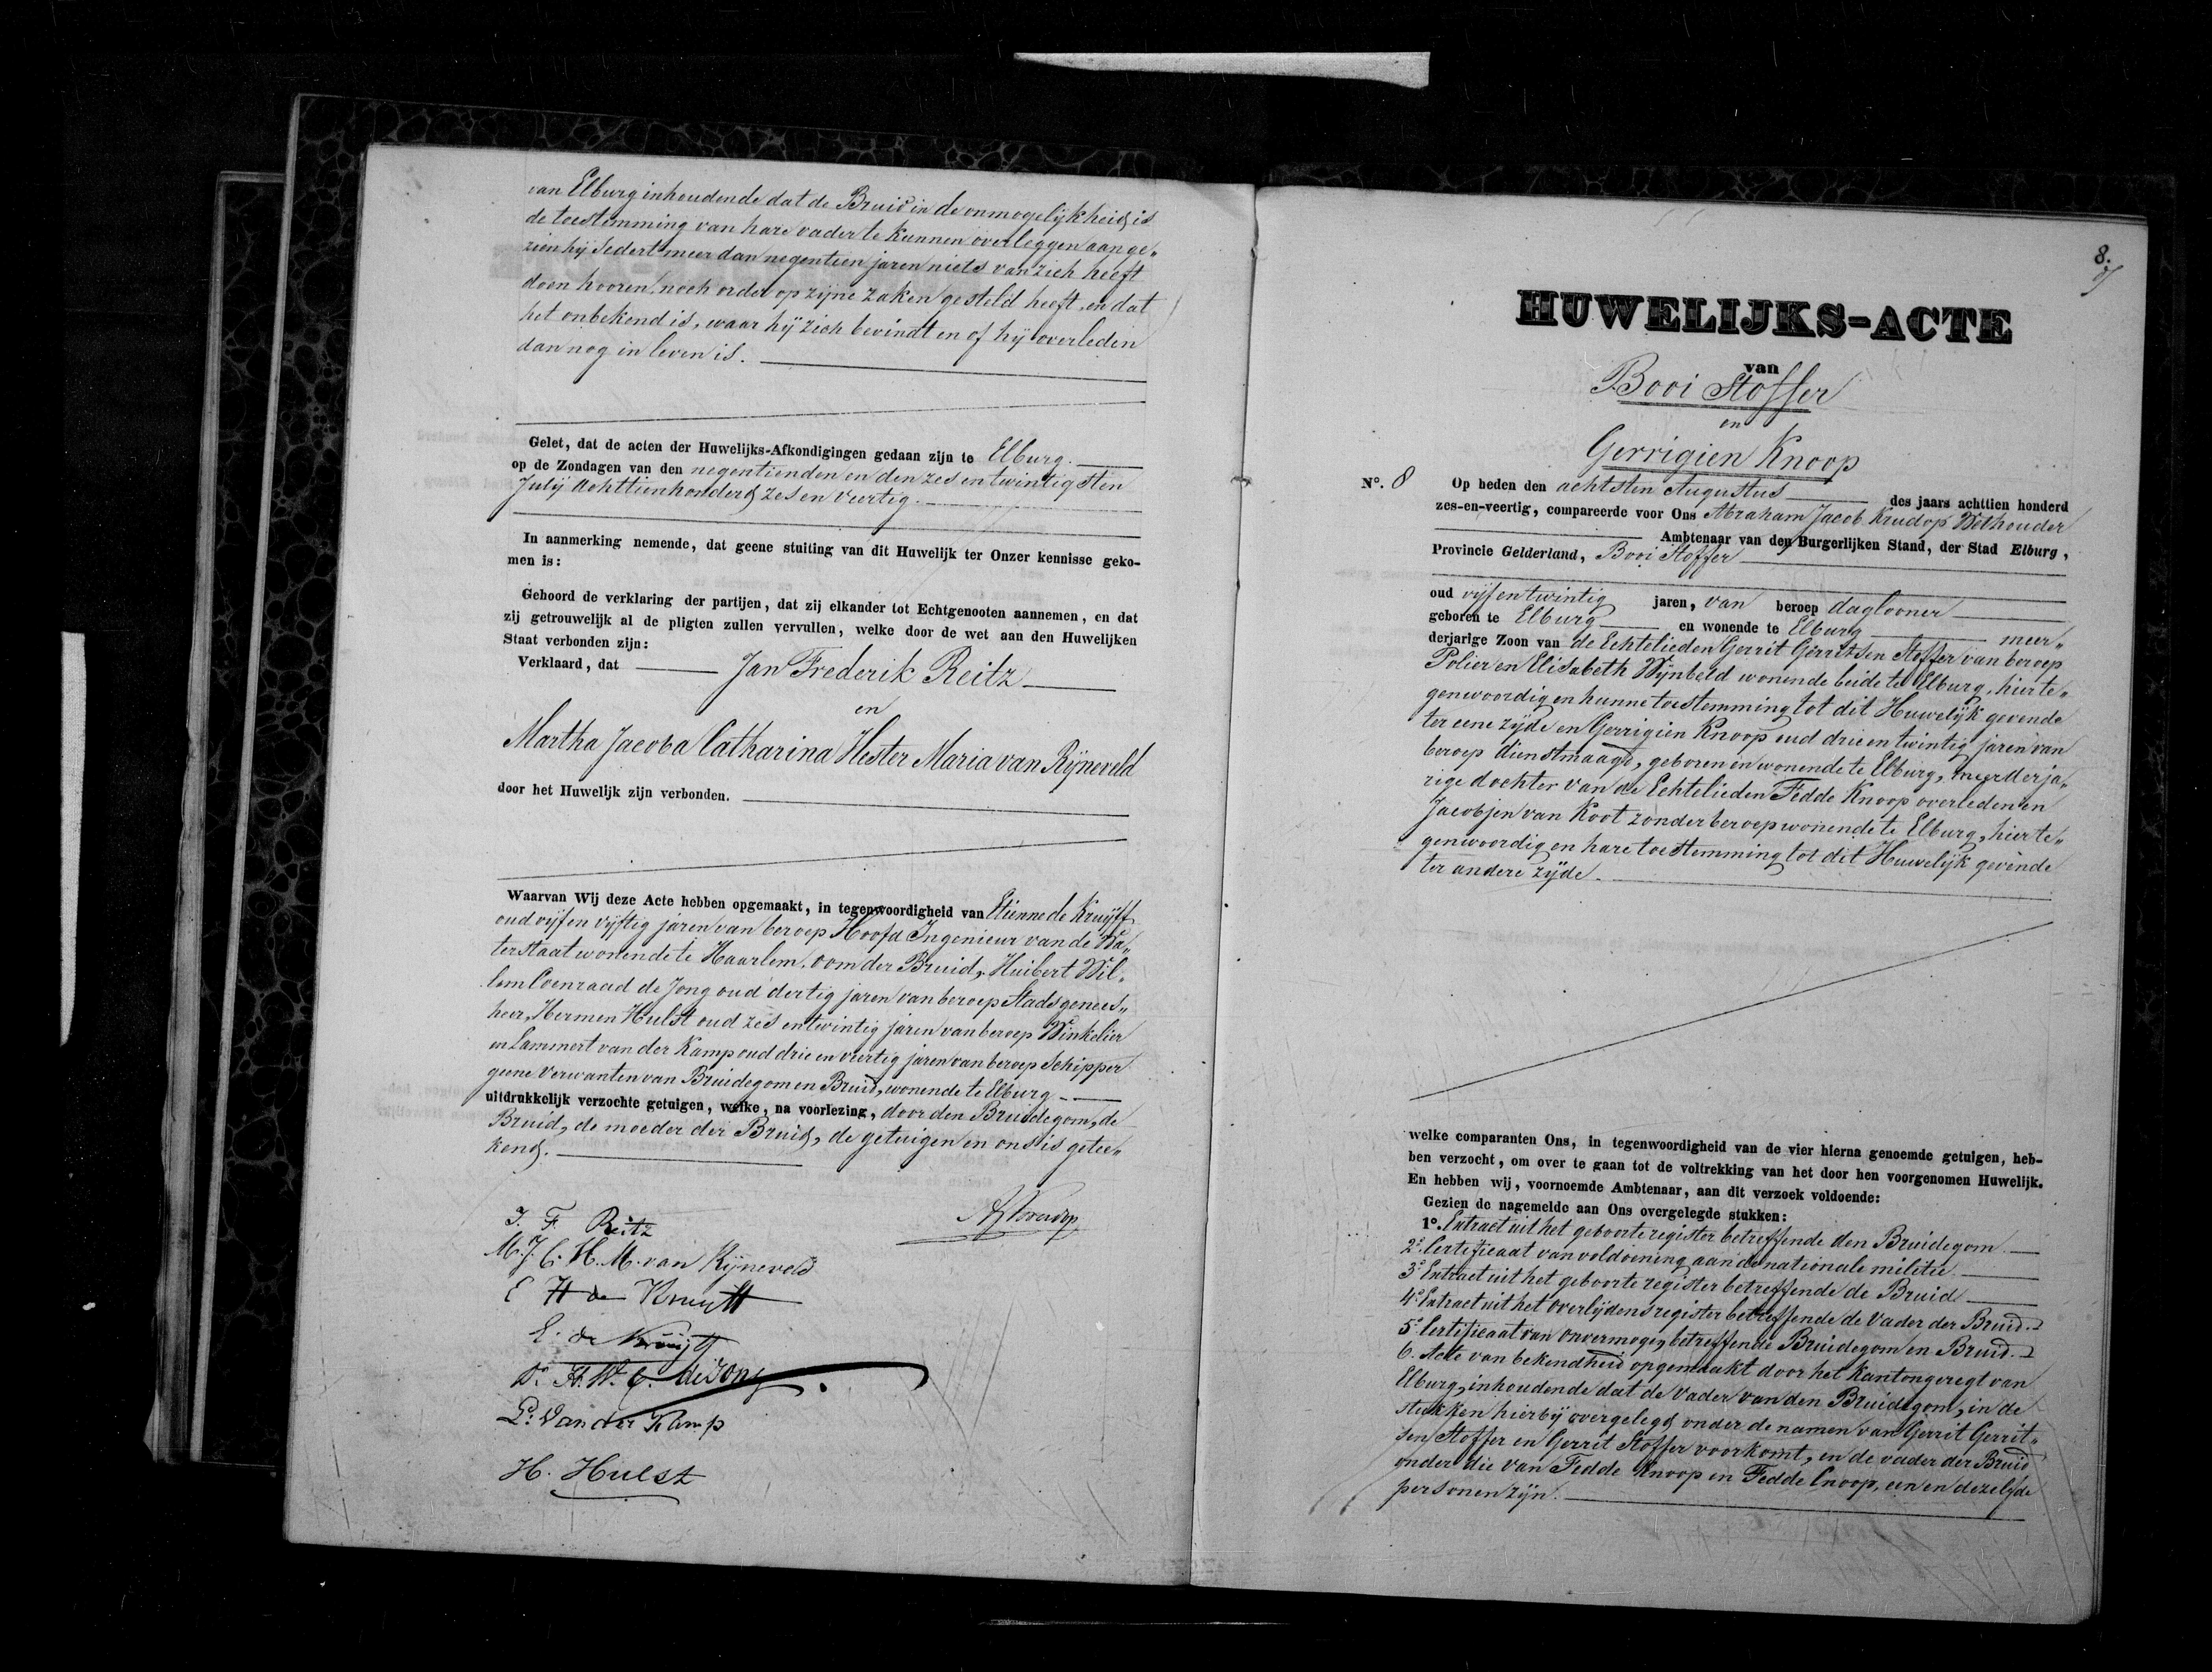 van Elburg inhoudende dat de Bruid in de onmogelijkheid is
de toestemming van hare vader te kunnen overleggen aange„
zien hij sedert meer dan negentien jaren niets van zich heeft
doen hooren, noch order op zijne zaken gesteld heeft, en dat
het onbekend is, waar hij zich bevindt en of hij overleden
dan nog in leven is.
Gelet, dat de acten der Huwelijks-Afkondigingen gedaan zijn te Elburg.
op de Zondagen van den negentienden en den zes en twintigsten
Julij Achttienhonderd zes en veertig.
In aanmerking nemende, dat geene stuiting van dit Huwelijk ter Onzer kennisse geko-
men is:
Gehoord de verklaring der partijen, dat zij elkander tot Echtgenooten aannemen, en dat
zij getrouwelijk al de pligten zullen vervullen, welke door de wet aan den Huwelijken
Staat verbonden zijn:
Verklaard, dat Jan Frederik Reitz
en
Martha Jacoba Catharina Hester Maria van Rijneveld
door het Huwelijk zijn verbonden.
Waarvan Wij deze Acte hebben opgemaakt, in tegenwoordigheid van Etienne de Kruijff
oud vijf en vijftig jaren van beroep Hoofd Ingenieur van de Wa„
terstaat wonende te Haarlem, oom der Bruid, Huibert Wil„
lem Coenraad de Jong oud dertig jaren van beroep Stads genees„
heer, Hermen Hulst oud zes en twintig jaren van beroep Winkelier
en Lammert van der Kamp oud drie en veertig jaren van beroep Schipper
geene Verwanten van Bruidegom en Bruid, wonende te Elburg
uitdrukkelijk verzochte getuigen, welke, na voorlezing, door den Bruidegom, de
Bruid, de moeder der Bruid, de getuigen en ons is getee„
kend.
AJKrudop
J. F. Reitz
M. J. C. H. M. van Rijneveld
E H de Kruyff
E. de Kruijff
Dr. H. W. C. de Jong
L. Van der Kamp
H. Hulst
8.
HUWELIJKS-ACTE
van
Booi Stoffer
en
Gerrigien Knoop
No. 8 Op heden den achtsten Augustus des jaars achttien honderd
zes-en-veertig, compareerde voor Ons Abraham Jacob Krudop Wethouder
Ambtenaar van den Burgerlijken Stand, der Stad Elburg,
Provincie Gelderland, Booi Stoffer
oud vijf en twintig jaren, van beroep daglooner
geboren te Elburg en wonende te Elburg meer„
derjarige Zoon van de Echtelieden Gerrit Gerritsen Stoffer van beroep
Polier en Elisabeth Wijnbeld wonende beide te Elburg, hierte„
genwoordig en hunne toestemming tot dit Huwelijk gevende
ter eene zijde en Gerrigien Knoop oud drie en twintig jaren van
beroep dienstmaagd, geboren en wonende te Elburg, meerderja„
rige dochter van de Echtelieden Fedde Knoop overleden en
Jacobjen van Koot zonder beroep wonende te Elburg, hierte„
genwoordig en hare toestemming tot dit Huwelijk gevende
ter andere zijde.
welke comparanten Ons, in tegenwoordigheid van de vier hierna genoemde getuigen, heb-
ben verzocht, om over te gaan tot de voltrekking van het door hen voorgenomen Huwelijk.
En hebben wij, voornoemde Ambtenaar, aan dit verzoek voldoende:
Gezien de nagemelde aan Ons overgelegde stukken:
1o. Extract uit het geboorte register betreffende den Bruidegom.
2o. Certificaat van voldoening aan de nationale militie.
3o Extract uit het geboorte register betreffende de Bruid
4o Extract uit het overlijdens register betreffende de Vader der Bruid.
5o Certificaat van onvermogen betreffende Bruidegom en Bruid.
6. Acte van bekendheid opgemaakt door het Kantongeregt van
Elburg, inhoudende dat de Vader van den Bruidegom, in de
stukken hierbij overgelegd onder de namen van Gerrit Gerrit„
sen Stoffer en Gerrit Stoffer voorkomt, en de vader der Bruid
onder die van Fedde Knoop en Fedde Cnoop, een en dezelfde
personen zijn.